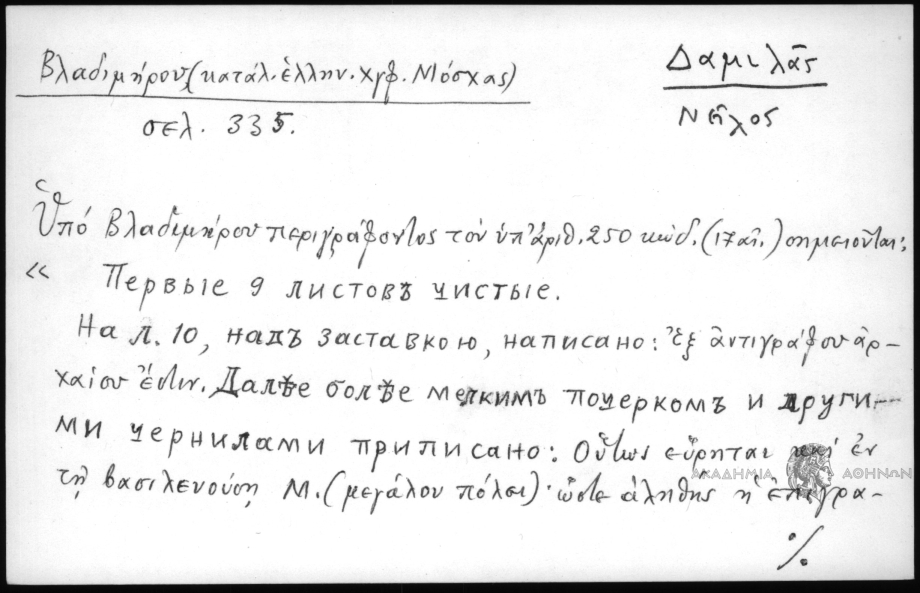 Βλαδιμήρου (κατάλ. ἑλλην. χγφ. Μόσχας)
σελ. 335.
Δαμιλᾶς
Νεῖλος
Ὑπό Βλαδιμήρου περιγράφοντος τὸν ὑπ' ἀριθ. 250 κώδ. (17 αἰ.) σημειοῦται:
« Первые 9 листовъ чистые.
На л. 10, надъ заставкою, написано: Ἐξ ἀντιγράφου ἀρ-
χαίου ἐστιν. Далѣе болѣе мелкимъ почеркомъ и други-
ми чернилами приписано: Οὕτως εὕρηται καὶ ἐν
τῇ βασιλευούσῃ Μ. (μεγάλου πόλει)· ὥστε ἀληθὴς ἡ ἐπιγρα-
ΑΚΑΔΗΜΙΑ ΑΘΗΝΩΝ
%